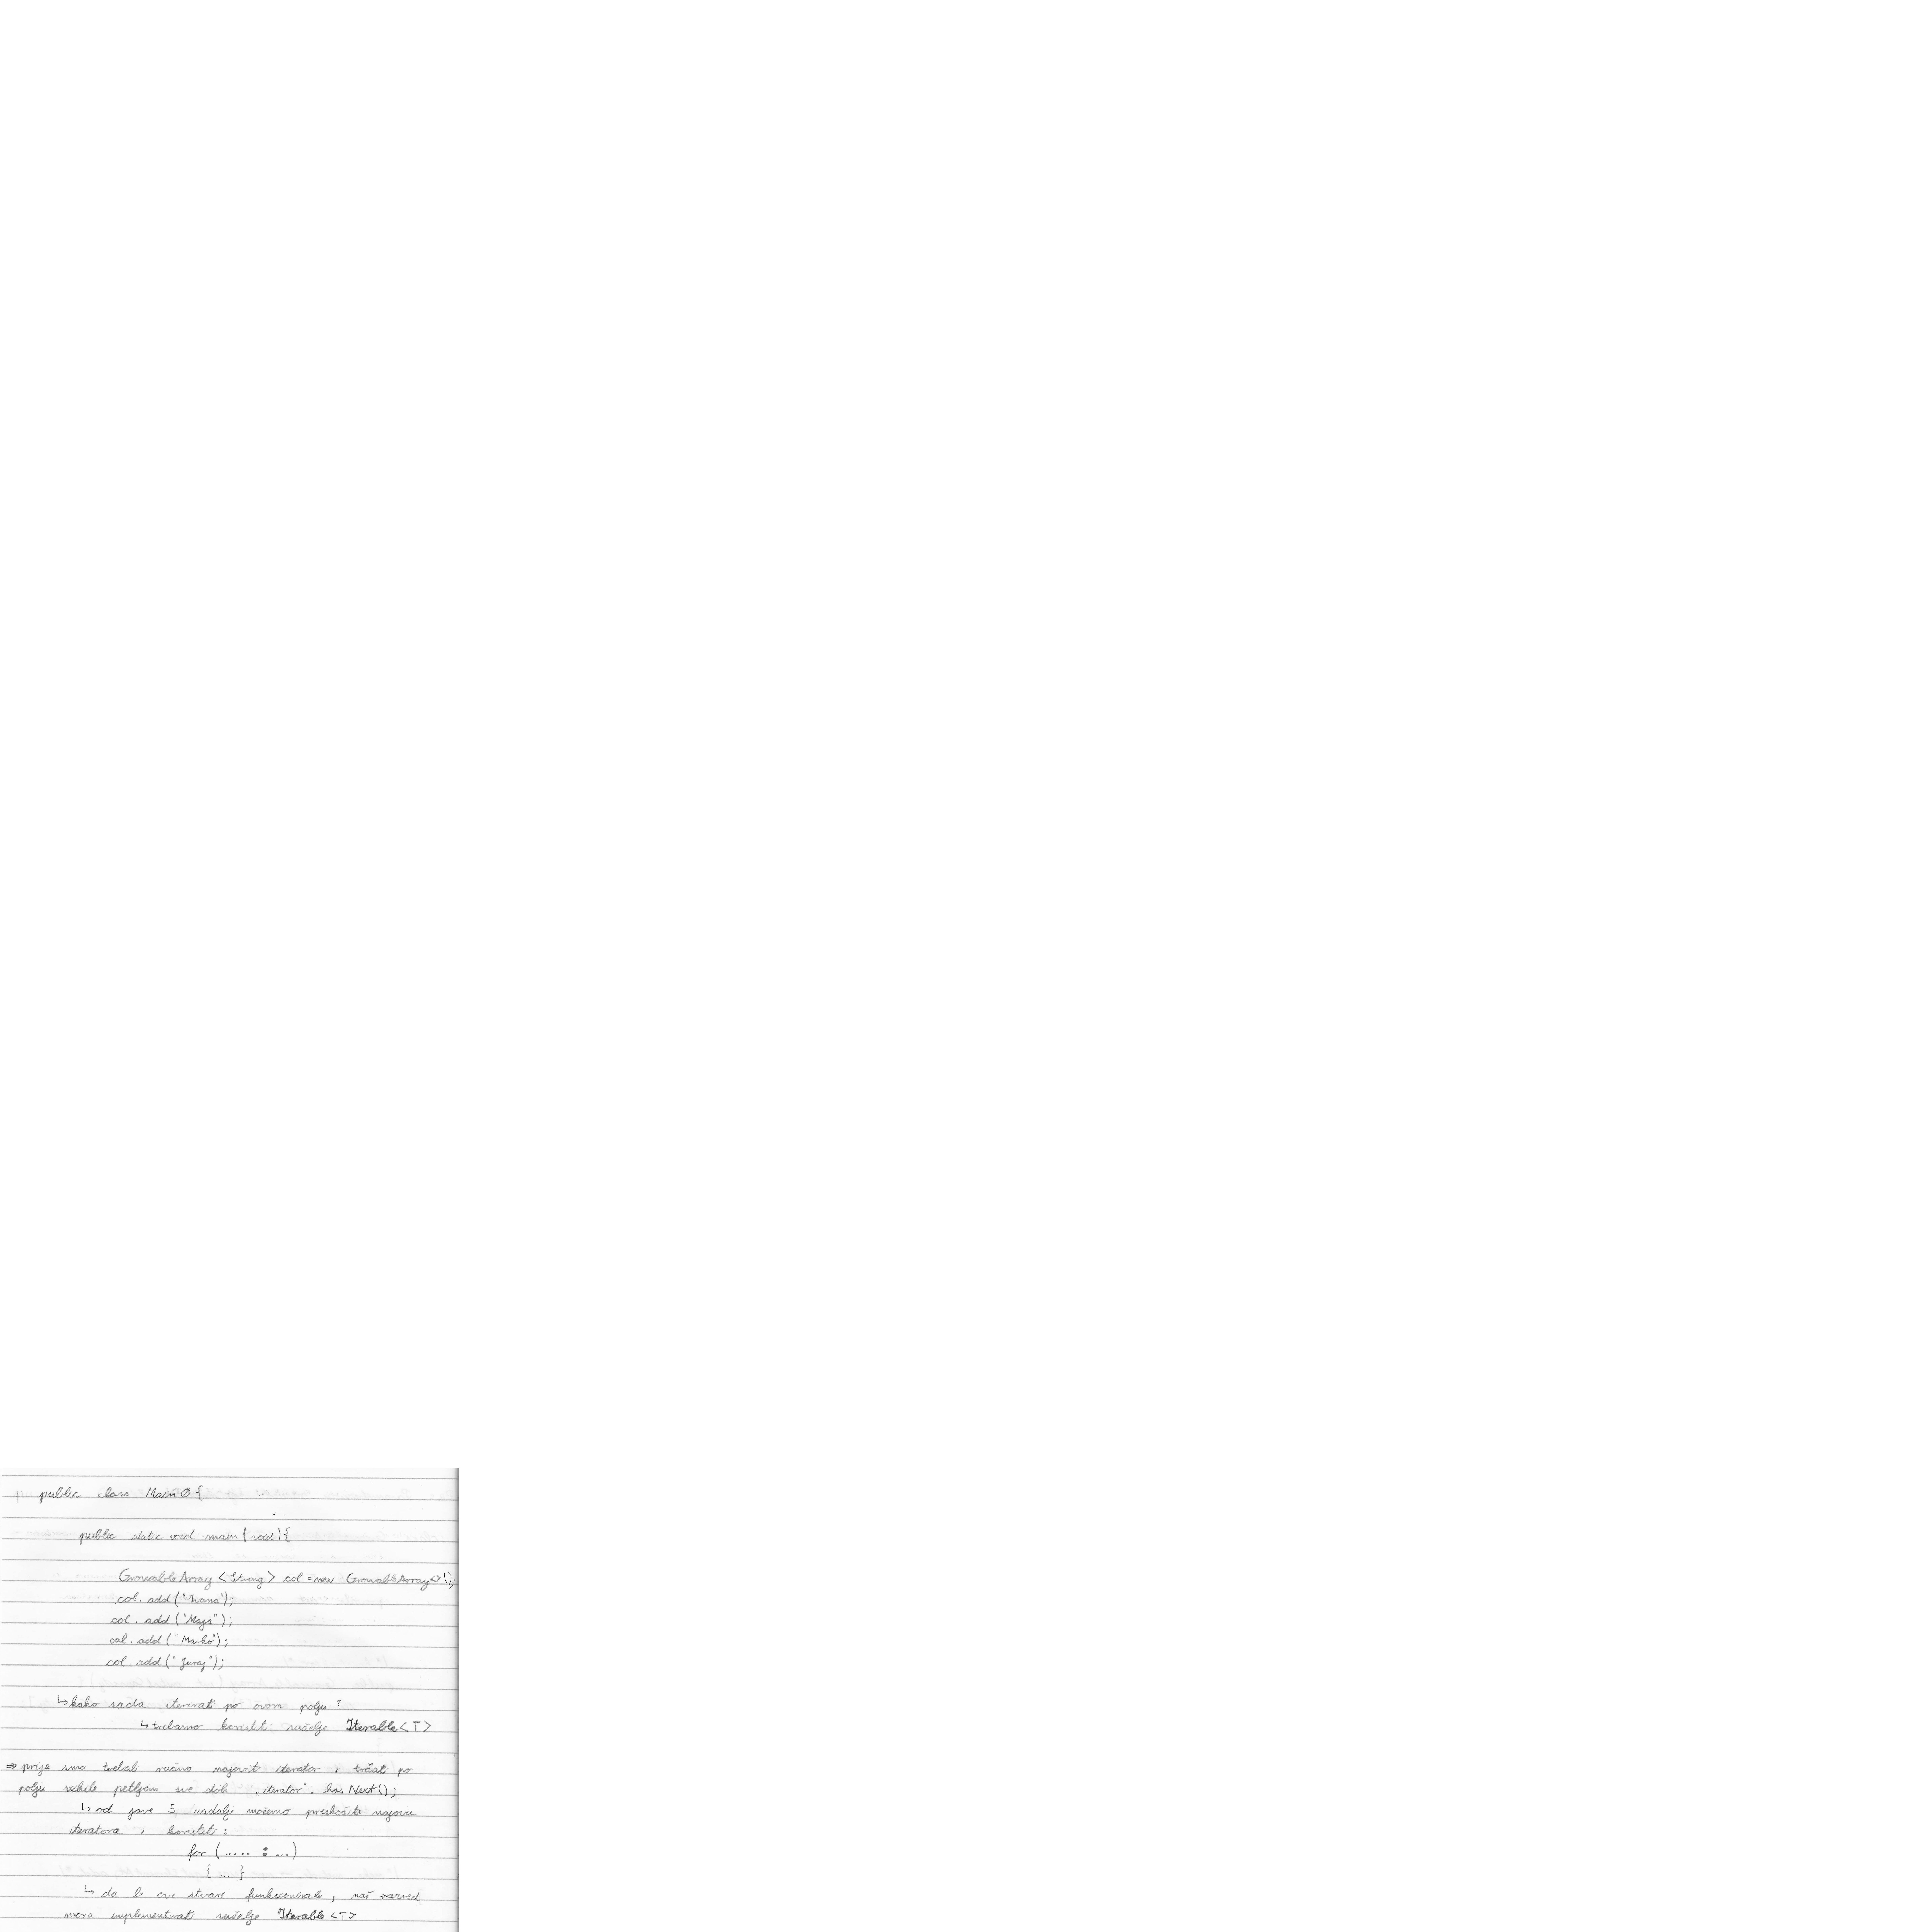 public class Main0 {
public static void main (void) {
GrowableArray <String> col = new GrowableArray<>();
col. add ("Ivana");
col. add ("Maja");
col. add ("Marko");
col. add ("Juraj");
↳ kako sada iterirati po ovom polju ?
↳ trebamo koristiti sučelje Iterable <T>
⇒ prije smo trebali ručno najaviti iterator i trčati po
polju while petljom sve dok „iterator". hasNext();
↳ od jave 5 nadalje možemo preskočiti najavu
iteratora i koristiti :
for (..... : ...)
{ ... }
↳ da bi ove stvari funkcionirale, naš razred
mora implementirati sučelje Iterable <T>